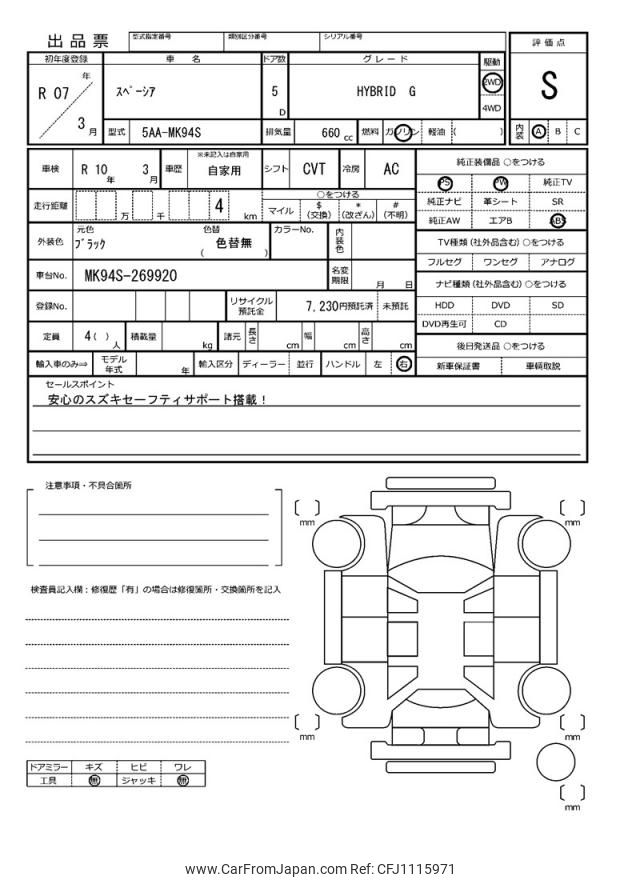 出品票
型式指定番号 類別区分番号 シリアル番号
評価点
S
初年度登録 車名 ドア数 グレード 駆動
R 07 年 3 月
スペーシア
5 D
HYBRID G
2WD
4WD
型式 5AA-MK94S 排気量 660 cc 燃料 ガソリン 軽油 ( )
内装 A B C
車検 R 10 年 3 月 車歴 ※未記入は自家用 自家用 シフト CVT 冷房 AC
純正装備品 ○をつける
PS PW 純正TV
純正ナビ 革シート SR
純正AW エアB ABS
走行距離 万 千 4 km
○をつける
マイル $ (交換) * (改ざん) # (不明)
外装色 元色 ブラック 色替 色替無 ( ) カラーNo. 内装色
TV種類(社外品含む) ○をつける
フルセグ ワンセグ アナログ
車台No. MK94S-269920 名変期限 月 日
ナビ種類(社外品含む) ○をつける
HDD DVD SD
DVD再生可 CD
登録No. リサイクル預託金 7,230円預託済 未預託
定員 4( ) 人 積載量 kg 諸元 長さ cm 幅 cm 高さ cm
後日発送品 ○をつける
新車保証書 車輌取説
輸入車のみ⇒ モデル年式 年 輸入区分 ディーラー 並行 ハンドル 左 右
セールスポイント
安心のスズキセーフティサポート搭載!
注意事項・不具合箇所
検査員記入欄：修復歴「有」の場合は修復箇所・交換箇所を記入
mm
mm
mm
mm
mm
ドアミラー キズ ヒビ ワレ
工具 無 ジャッキ 無
www.CarFromJapan.com Ref: CFJ1115971